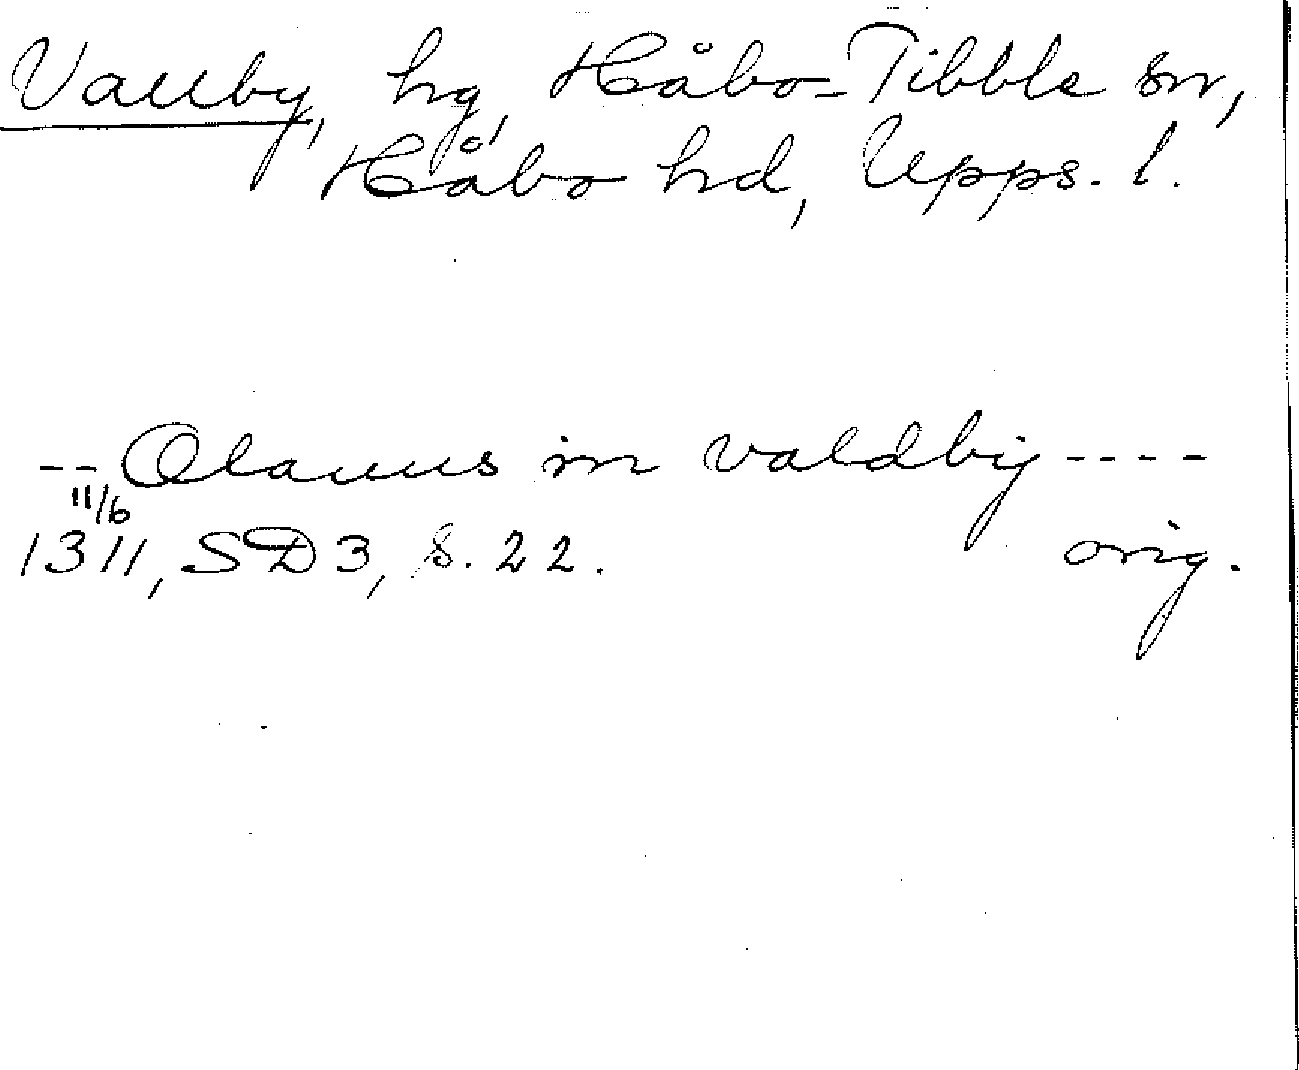 Vallby, hg, Håbo-Tibble sn,
Håbo hd, Upps. l.
-- Olauus in valdby ----
11/6
1311, SD 3, s. 22. orig.